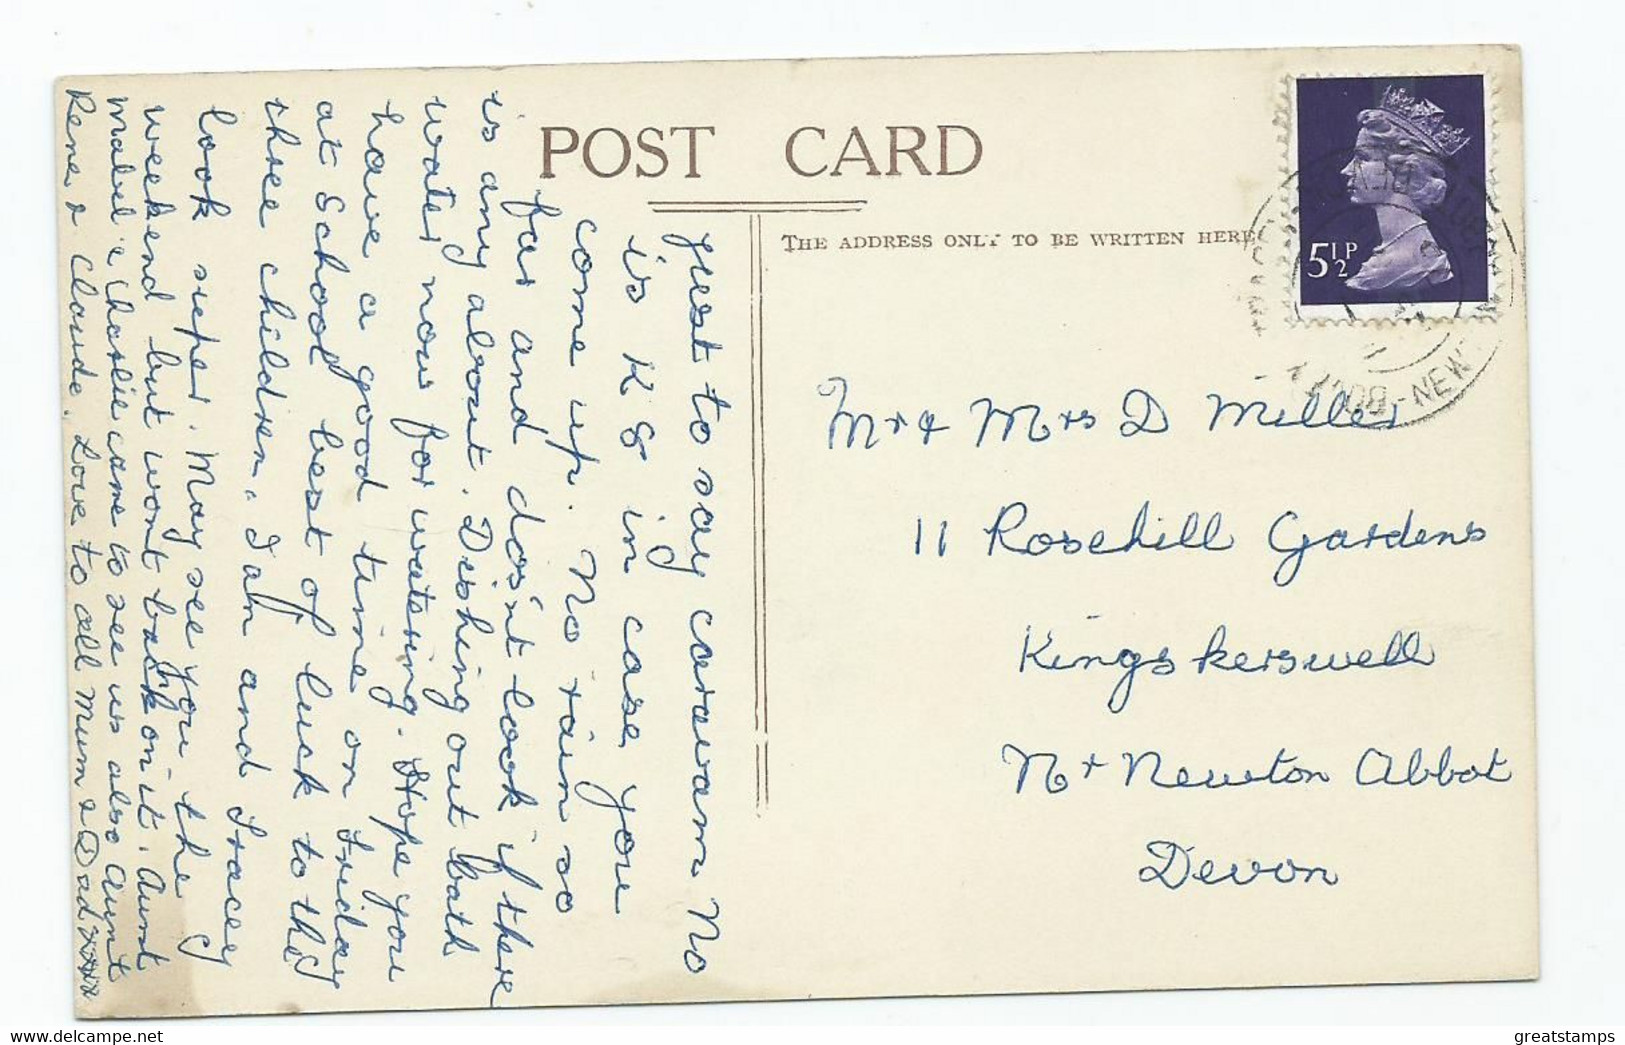 POST CARD
THE ADDRESS ONLY TO BE WRITTEN HERE
5½P
Just to say caravan No
is K8 in case you
come up. No rain so
far and dosn't look if there
is any about. Dishing out bath
water now for watering. Hope you
have a good time on Friday
at School best of luck to the
three children. Ian and Tracey
look super. May see you the
weekend but wont bank on it. Aunt
Mabel & Charlie came to see us also Aunt
Rene & Claude. Love to all Mum & Dad xxxx
Mr & Mrs D Miller
11 Rosehill Gardens
Kingskerswell
Nr Newton Abbot
Devon
greatstamps